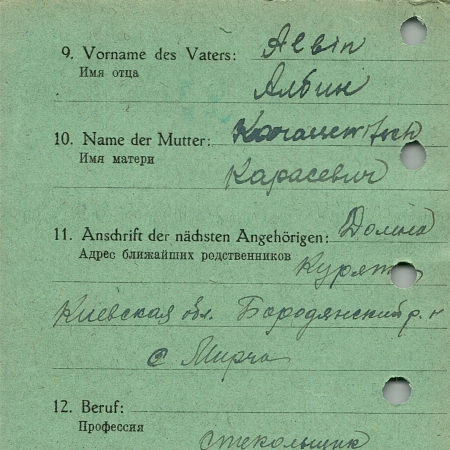 9. Vorname des Vaters: Albin
Имя отца
Албин
10. Name der Mutter:
Имя матери
Карасевич
11. Anschrift der nächsten Angehörigen:
Адрес ближайших родственников
Киевская обл. Бородянский р-н
с Мирча
12. Beruf:
Профессия
стекольщик